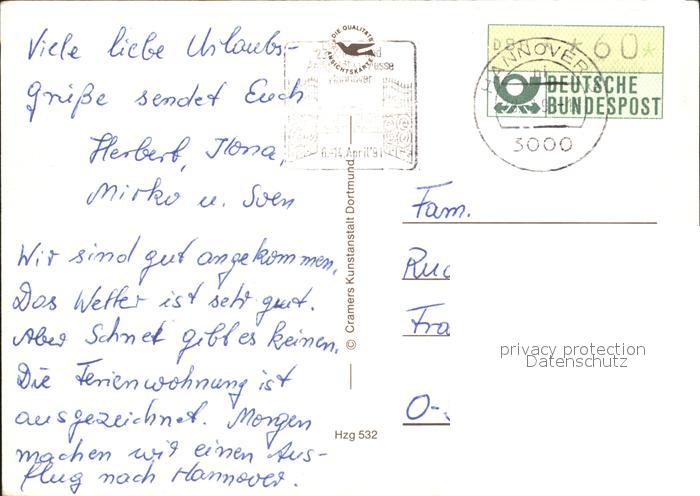 Viele liebe Urlaubs-
grüße sendet Euch
Herbert, Ilona,
Mirko u. Sven
Wir sind gut angekommen.
Das Wetter ist sehr gut.
Aber Schnee gibt es keinen.
Die Ferienwohnung ist
ausgezeichnet. Morgen
machen wir einen Aus-
flug nach Hannover.
DIE QUALITÄTS
ANSICHTSKARTE
Hannover
6.-14. April '91
© Cramers Kunstanstalt Dortmund
Hzg 532
DBP * 60 *
DEUTSCHE
BUNDESPOST
HANNOVER
3000
Fam.
Fra
O-
privacy protection
Datenschutz